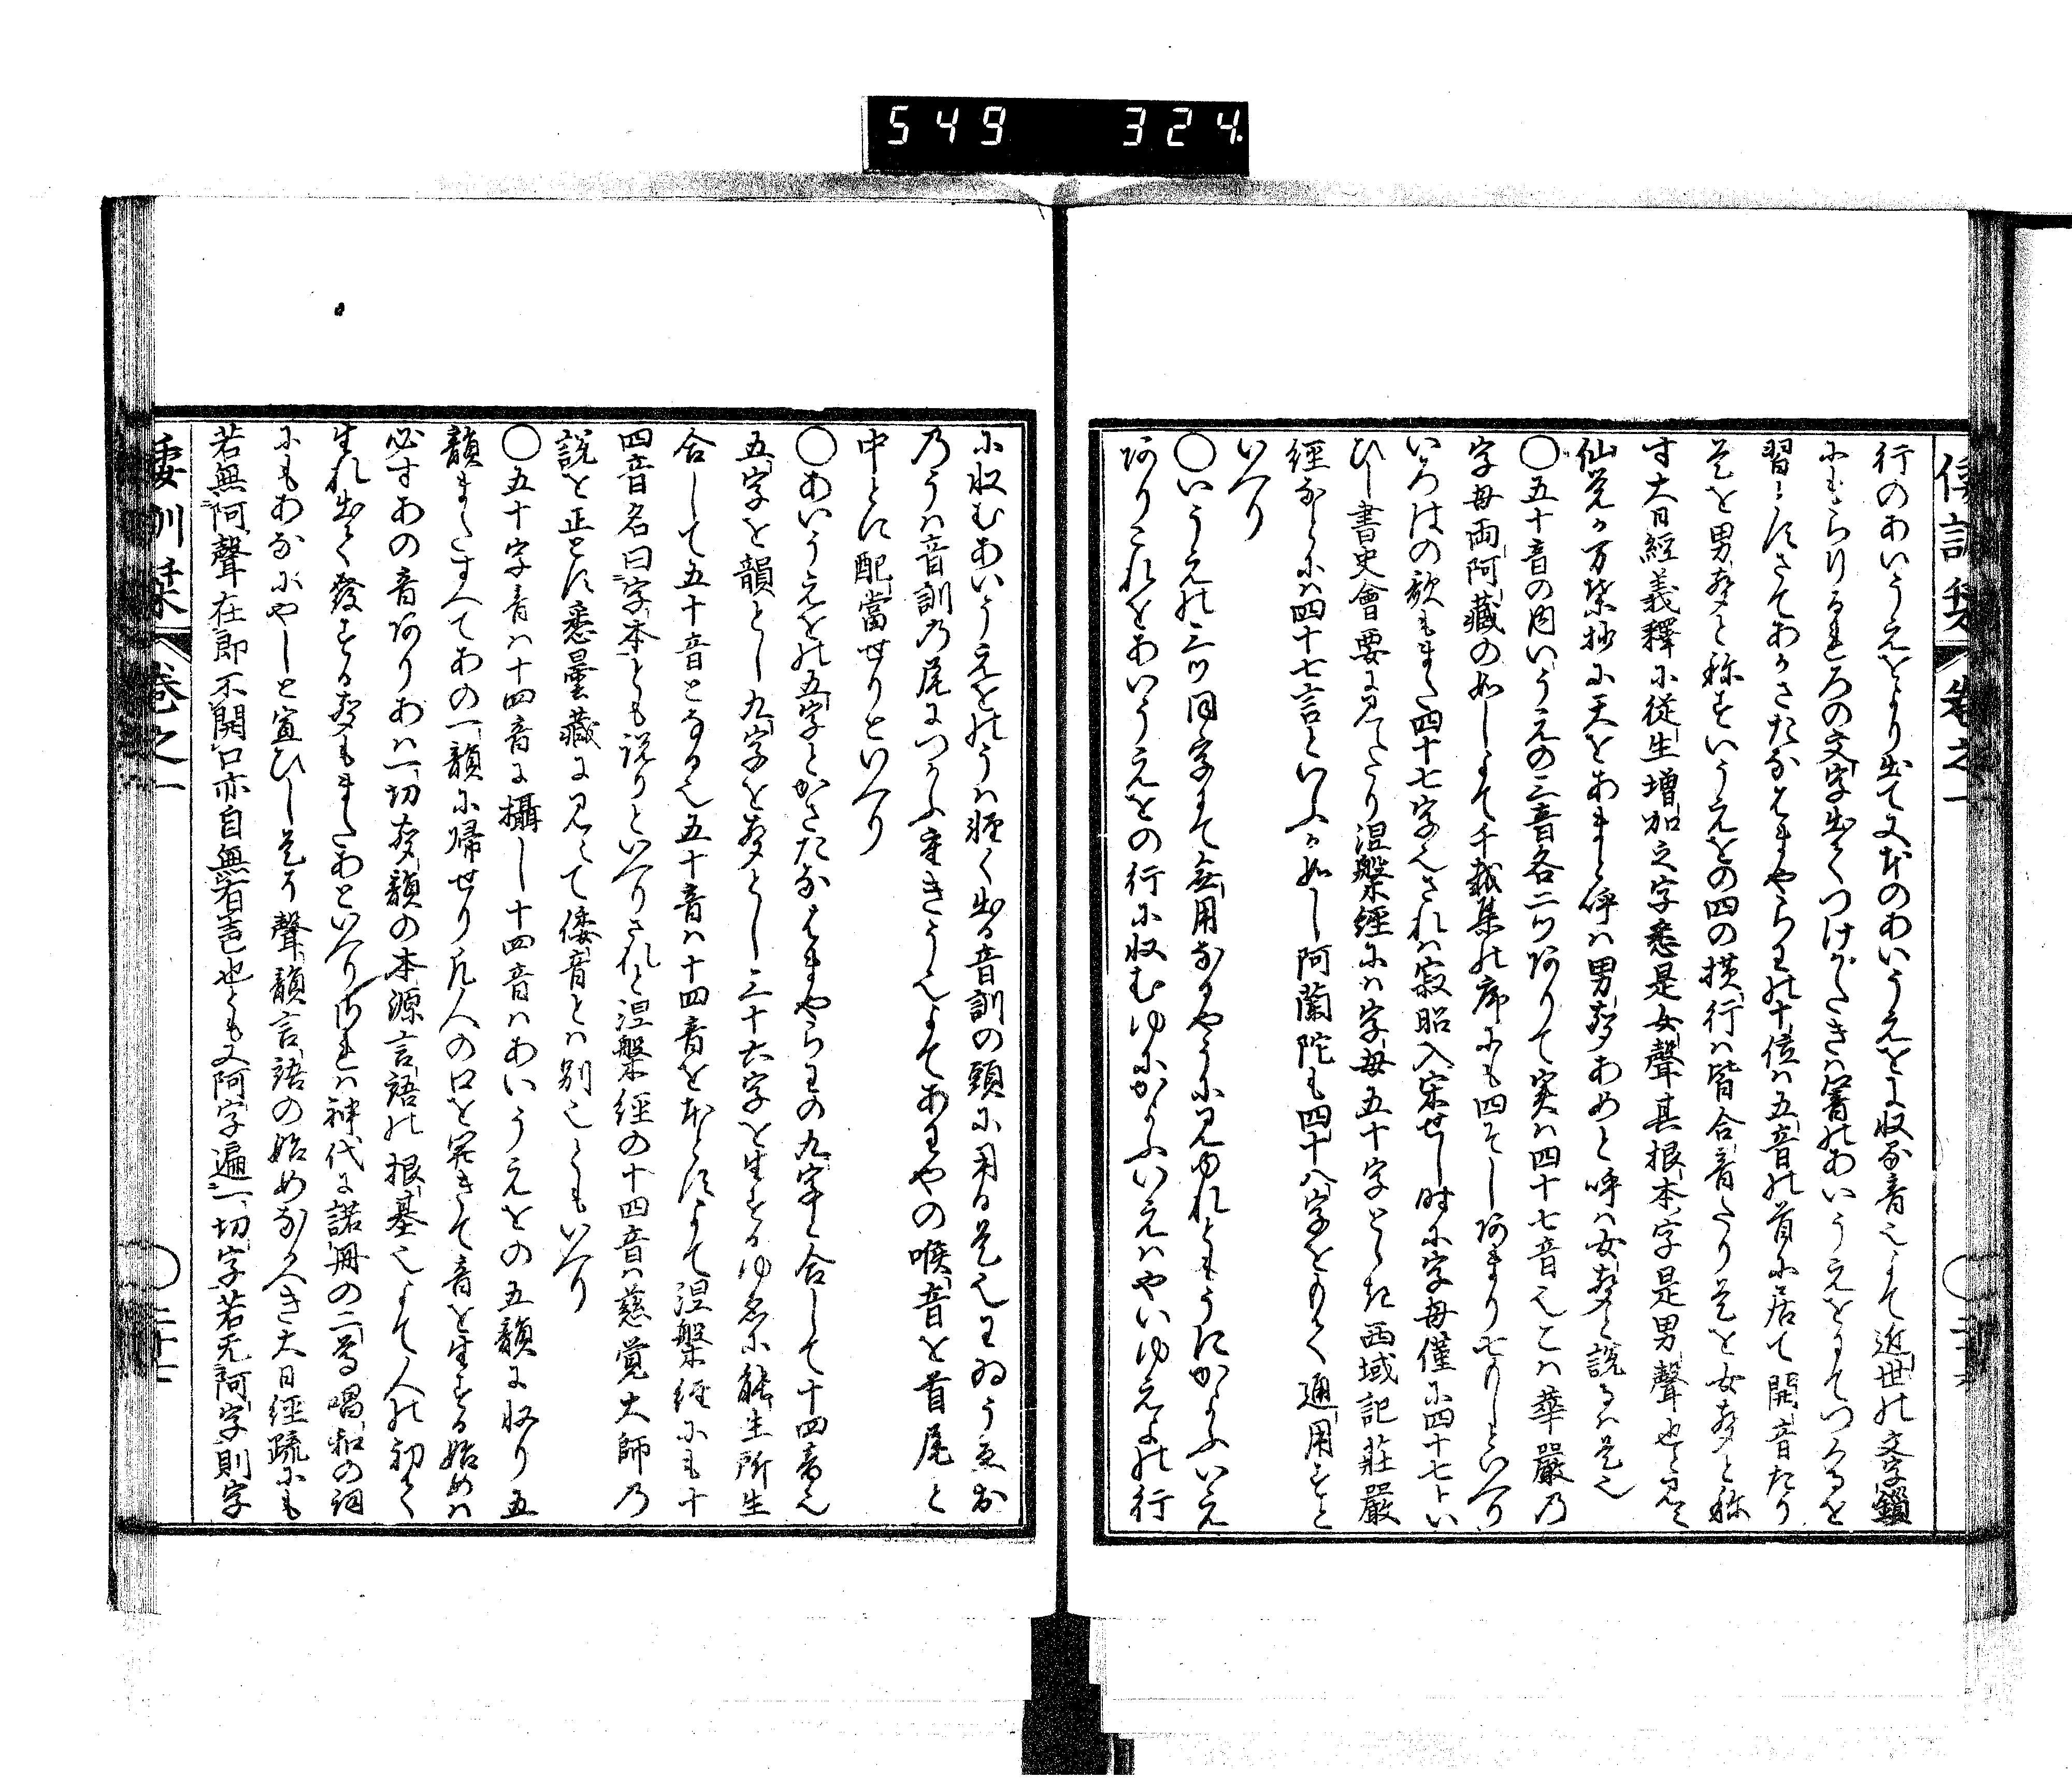 549 324
倭訓栞 巻之一
行のあいうえをより出て又本のあいうえをに収る音也よて近世の文字鎖
にもらりるれろの文字出てつけがたきハ響のあいうえをもてつくるを
習とすさてあかさたなはまやらわの十位ハ五音の首に居て開音たり
是を男聲と称すいうえをの四の横行ハ皆合音たり是を女聲と称
す大日經義釋に従生増加之字悉是女聲其根本字是男聲也と見え
仙覚か万葉抄に天をあまと呼ハ男聲あめと呼ハ女聲と説るハ是也
〇五十音の内いうえの三音各二ツありて実ハ四十七音也こハ華嚴乃
字母両阿藏の如しよて千載集の序にも四そしあまり七のしといへり
いろはの歌もまた四十七字也されハ寂昭入宋せし時に字母僅に四十七とい
ひし書史會要に見えたり涅槃經にハ字母五十字とした西域記荘嚴
經なとにハ四十七言といふか如し阿蘭陀も四十八字をもて通用すと
いへり
〇いうえの三ツ同字にて無用なるやうに見ゆれともうにかよふいえ
ありこれをあいうえをの行に収むゆにかよふいえハやいゆえよの行
に収むあいうえをのうハ軽く出る音訓の頭に用る是也わゐうゑお
乃うハ音訓乃尾につかふ重きう也よてあわやの喉音を首尾と
中とに配當せりといへり
〇あいうえをの五字とかさたなはまやらわの九字と合して十四音也
五字を韻とし九字を聲とし三十六字を生するゆゑに能生所生
合して五十音となる也五十音ハ十四音を本とすよて涅槃經にも十
四音名曰字本とも説りといへりされと涅槃經の十四音ハ慈覚大師乃
説を正とす悉曇藏に見えて倭音とハ別也ともいへり
〇五十字音ハ十四音に攝し十四音ハあいうえをの五韻に収り五
韻またすへてあの一韻に帰せり凡人の口を開きて音を生する始めハ
必すあの音ありあハ一切聲韻の本源言語の根基也よて人の初て
生れ出て發する聲もまたあといへりされハ神代に諾冊の二尊唱和の詞
にもあなにやしと宣ひし是り聲韻言語の始めなるへき大日經疏にも
若無阿聲在即不開口亦自無有声也とも又阿字遍一切字若无阿字則字
倭訓栞 巻之一
〇二十七